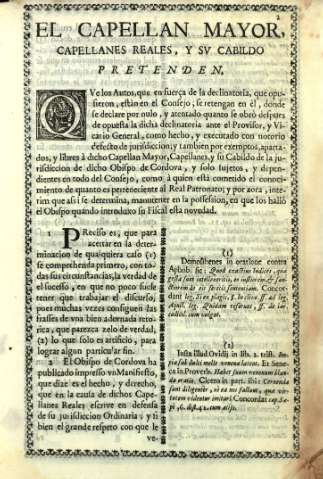 2
EL CAPELLAN MAYOR,
CAPELLANES REALES, Y SV CABILDO
PRETENDEN,
QVe los Autos, que en fuerça de la declinatoria, que opu-
sieron, estàn en el Consejo, se retengan en èl, donde
se declare por nulo, y atentado quanto se obrò despues
de opuesta la dicha declinatoria ante el Provisor, y Vi-
cario General, como hecho, y executado con notorio
defecto de jurisdiccion; y tambien por exemptos, aparta-
dos, y libres à dicho Capellan Mayor, Capellanes, y su Cabildo de la ju-
risdiccion de dicho Obispo de Cordova, y solo sujetos, y depen-
dientes en todo del Consejo, como à quien està cometido el conoci-
miento de quanto es perteneciente al Real Patronato; y por aora, interin
que assi se determina, mantener en la possession, en que los hallò
el Obispo quando introduxo su Fiscal esta novedad.
1 PReciso es, que para
acertar en la deter-
minacion de qualquiera caso (1)
se comprehenda primero, con to-
das sus circonstancias, la verdad de
el sucesso, en que no poco suele
tener que trabajar el discurso,
pues muchas vezes consiguen las
frases de vna bien adornada reto-
rica, que parezca zelo de verdad,
(2) lo que solo es artificio, para
lograr algun particular fin.
2 El Obispo de Cordova ha
publicado impresso vn Manifiesto,
que dize es el hecho, y derecho,
que en la causa de dichos Cape-
llanes Reales escrive en defensa
de su jurisdiccion Ordinaria; y si
bien el grande respeto con que le
ve-
(1)
Demosthenes in oratione contra
Aphob. sic: Quod
(2)
Iuxta illud Ovidij in lib. 2. trist.
Et Sene-
ca in Proverb. Habet suum venenum blan-
da oratio. Cicero in part. ibi:
Concordat cap.